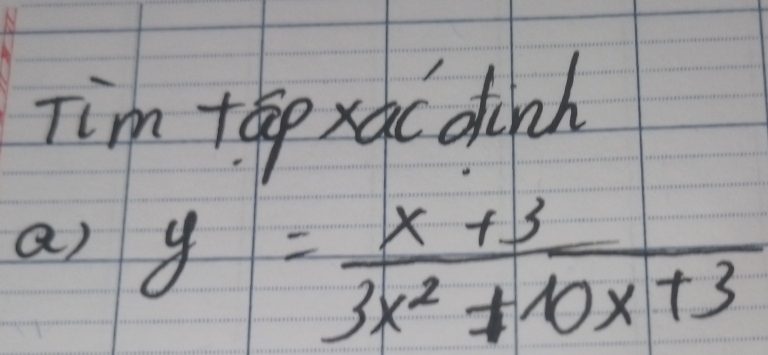 Tìm tập xác định
a) y = x + 3
3x² + 10x + 3